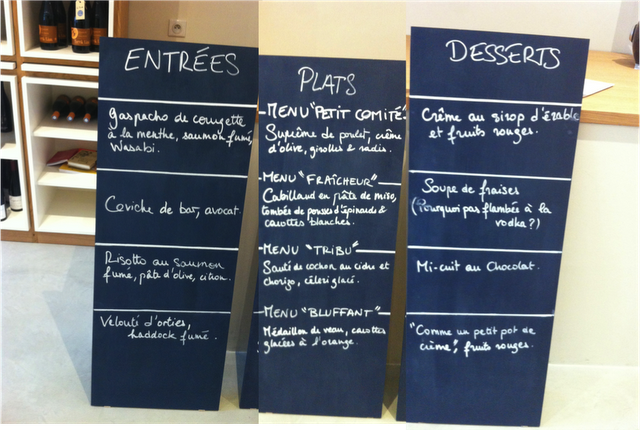 ENTRÉES
gaspacho de courgette
à la menthe, saumon fumé,
Wasabi.
Ceviche de bar, avocat.
Risotto au saumon
fumé, pâte d'olive, citron.
Velouté d'orties,
haddock fumé.
PLATS
MENU "PETIT COMITÉ"
Suprême de poulet, crème
d'olive, girolles & radis.
MENU "FRAÎCHEUR"
Cabillaud en pâte de miso,
tombée de pousses d'épinards &
carottes blanches.
MENU "TRIBU"
Sauté de cochon au cidre et
chorizo, céleri glacé.
MENU "BLUFFANT"
Médaillon de veau, carottes
glacées à l'orange.
DESSERTS
Crème au sirop d'érable
et fruits rouges.
Soupe de fraises
(Pourquoi pas flambée à la
vodka?)
Mi-cuit au Chocolat.
"Comme un petit pot de
crème", fruits rouges.